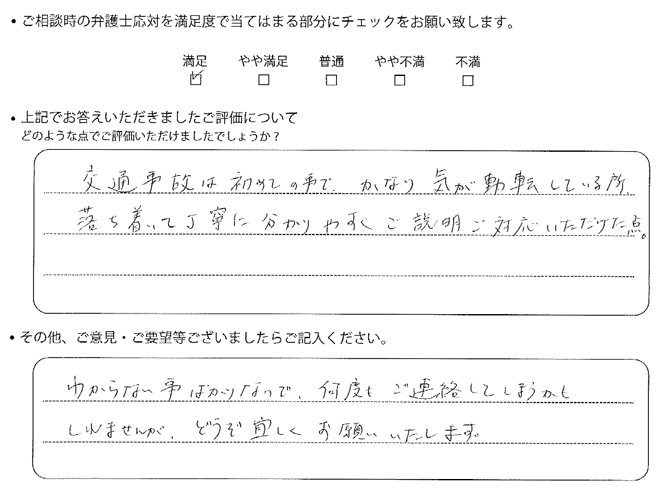 ・ご相談時の弁護士応対を満足度で当てはまる部分にチェックをお願い致します。
満足 やや満足 普通 やや不満 不満
☑ □ □ □ □
・上記でお答えいただきましたご評価について
どのような点でご評価いただけましたでしょうか？
交通事故は初めての事で、かなり気が動転している所
落ち着いて丁寧に分かりやすくご説明ご対応いただけた点。
・その他、ご意見・ご要望等ございましたらご記入ください。
わからない事ばかりなので、何度もご連絡してしまうかも
しれませんが、どうぞ宜しくお願いいたします。